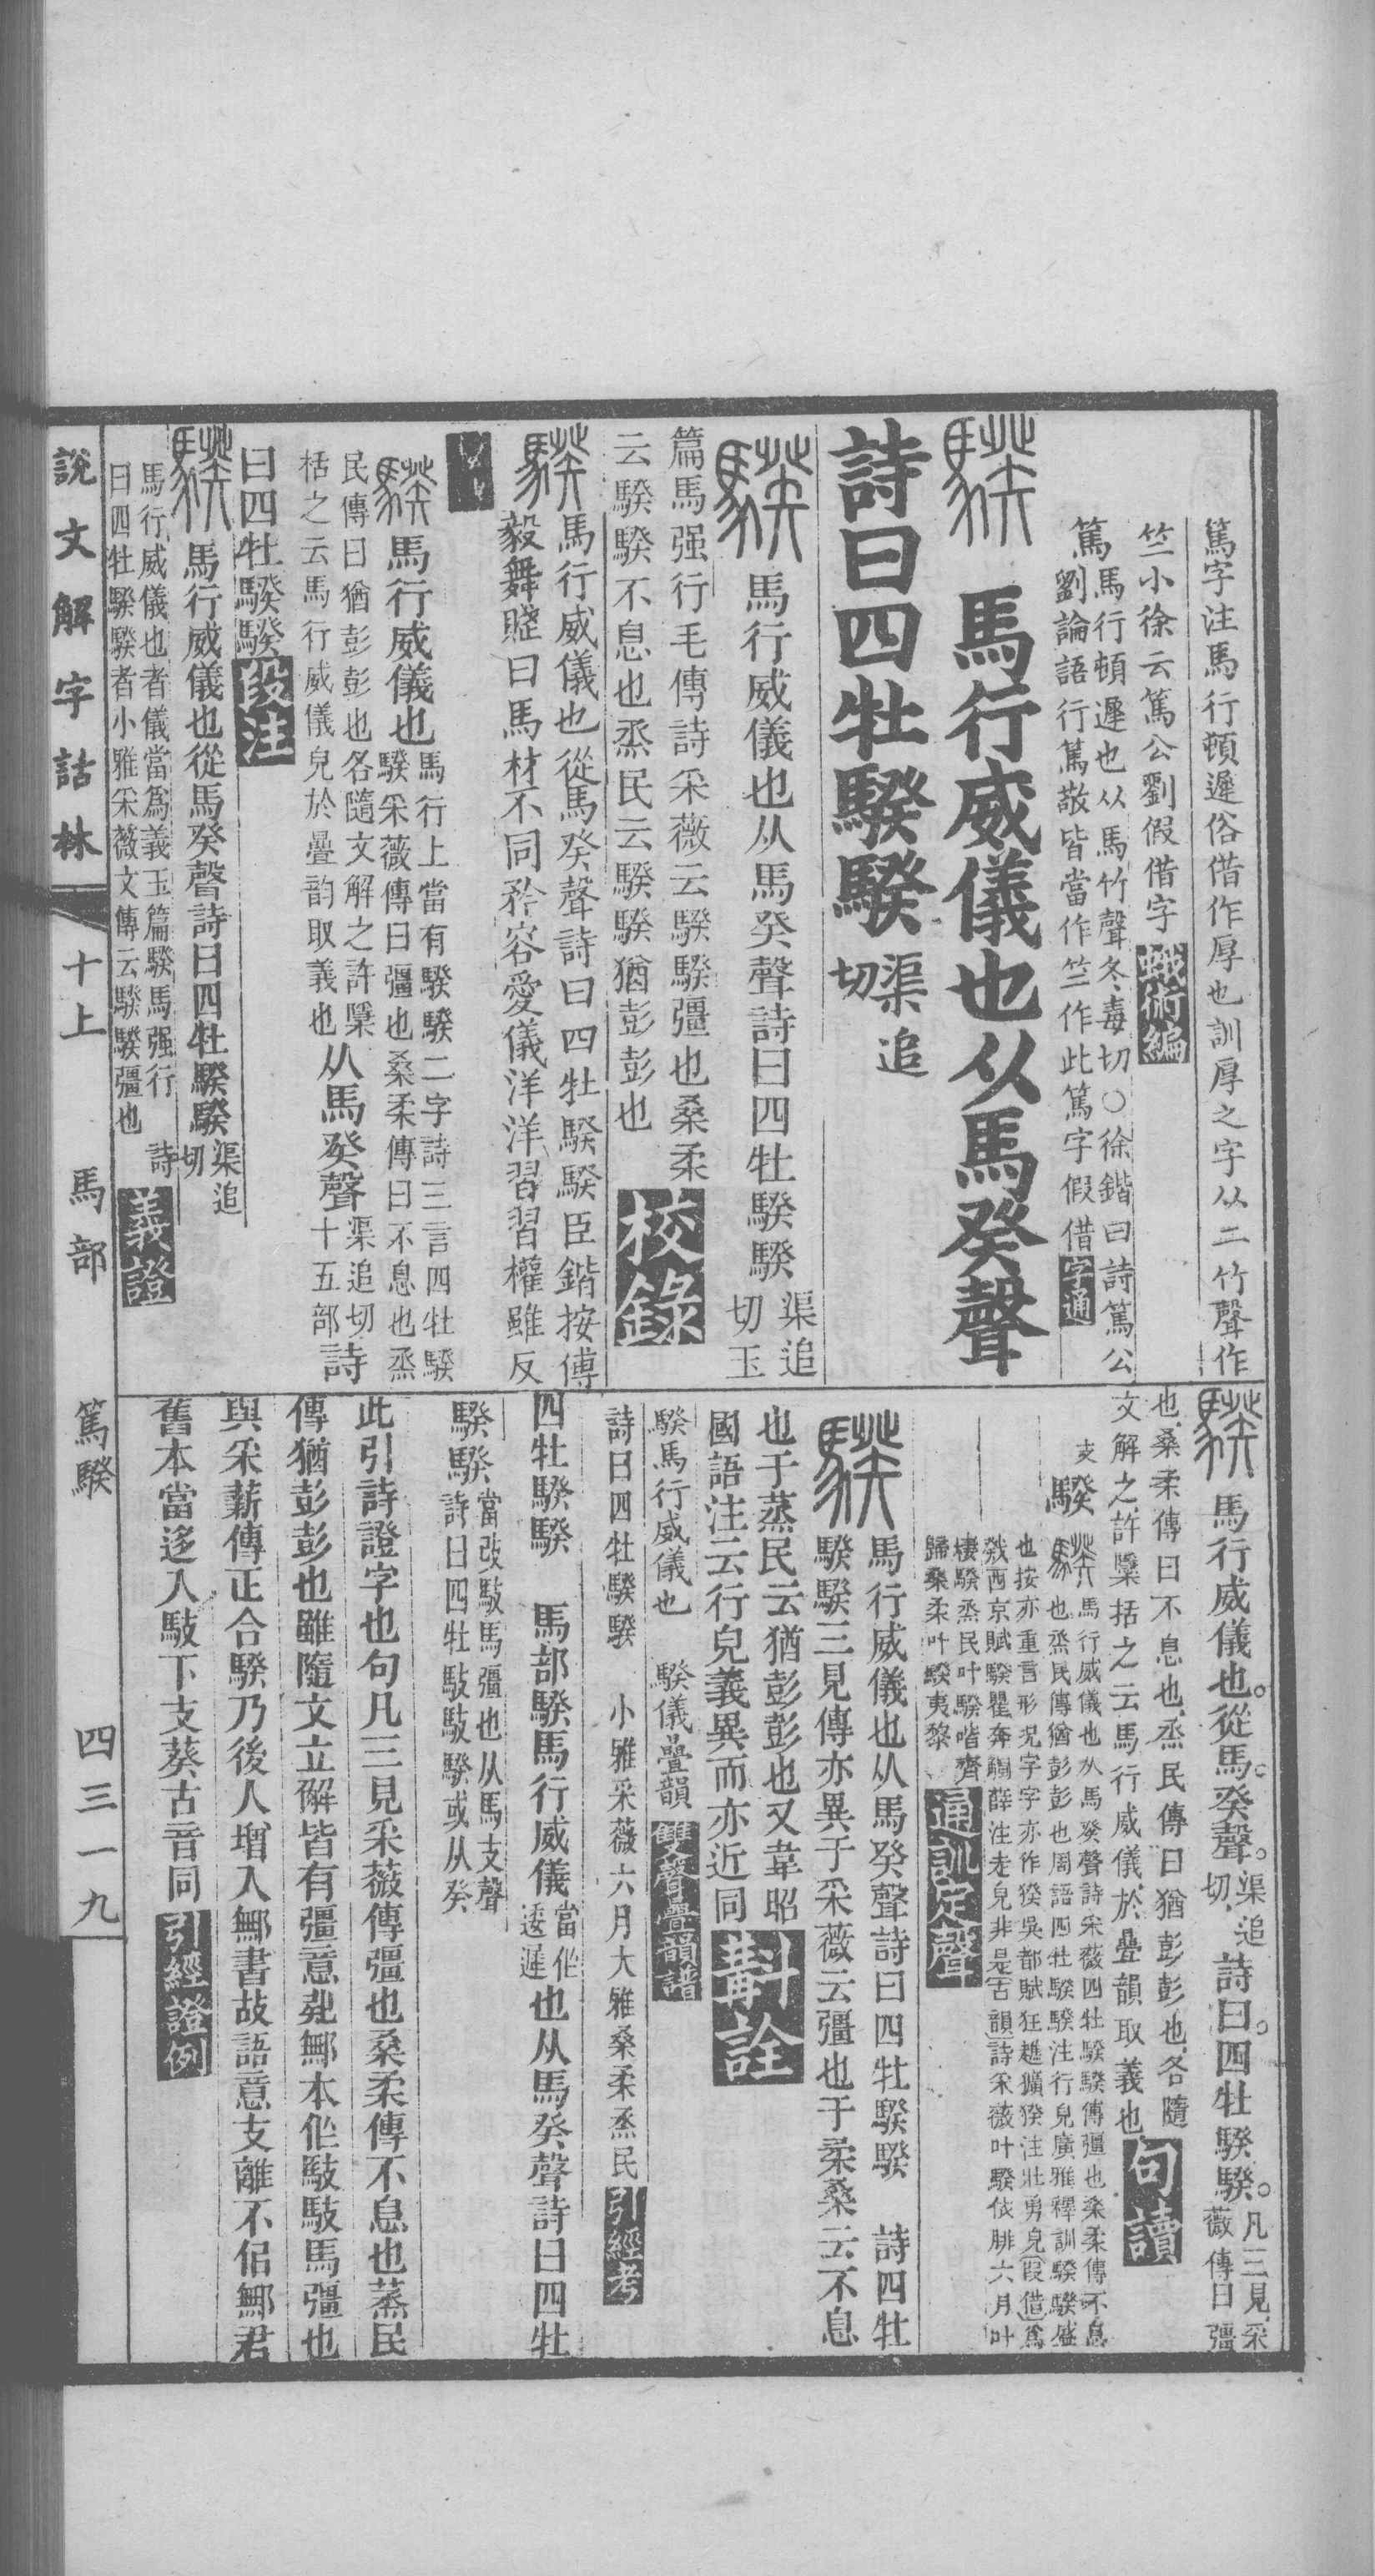 篤字注馬行頓遲俗借作厚也訓厚之字从二竹聲作
竺小徐云篤公劉假借字蛾術編
篤馬行頓遲也从馬竹聲冬毒切○徐鍇曰詩篤公
劉論語行篤敬皆當作竺作此篤字假借字通
騤 馬行威儀也从馬癸聲
詩曰四牡騤騤渠追切
騤馬行威儀也从馬癸聲詩曰四牡騤騤渠追切玉
篇馬强行毛傳詩采薇云騤騤彊也桑柔
云騤騤不息也烝民云騤騤猶彭彭也校錄
騤馬行威儀也從馬癸聲詩曰四牡騤騤臣鍇按傅
毅舞賦曰馬材不同矜容愛儀洋洋習習權雖反
騤馬行威儀也馬行上當有騤騤二字詩三言四牡騤
騤采薇傳曰彊也桑柔傳曰不息也烝
民傳曰猶彭彭也各隨文解之許檃
栝之云馬行威儀皃於疊韵取義也从馬癸聲渠追切十五部詩
曰四牡騤騤段注
騤馬行威儀也從馬癸聲詩曰四牡騤騤渠追切
馬行威儀也者儀當爲義玉篇騤馬强行 詩
曰四牡騤騤者小雅采薇文傳云騤騤彊也義證
騤馬行威儀也從馬癸聲渠追切詩曰四牡騤騤凡三見采薇傳曰彊
也桑柔傳曰不息也烝民傳曰猶彭彭也各隨
文解之許檃括之云馬行威儀於疊韻取義也句讀
騤騤馬行威儀也从馬癸聲詩采薇四牡騤騤傳彊也桑柔傳不息
也烝民傳猶彭彭也周語四牡騤騤注行皃廣雅釋訓騤騤盛
也按亦重言形況字字亦作猤吳都賦狂趭獷猤注壯勇皃假借爲
西京賦騤瞿奔觸薛注走皃非是古韻詩采薇叶騤依腓六月叶
棲騤烝民叶騤喈齊
歸桑柔叶騤夷黎通訓定聲
騤馬行威儀也从馬癸聲詩曰四牡騤騤 詩四牡
騤騤三見傳亦異于采薇云彊也于柔桑云不息
也于蒸民云猶彭彭也又韋昭
國語注云行皃義異而亦近同斠詮
騤馬行威儀也 騤儀疊韻雙聲疊韻譜
詩曰四牡騤騤 小雅采薇六月大雅桑柔烝民引經考
四牡騤騤 馬部騤馬行威儀當作逶遲也从馬癸聲詩曰四牡
騤騤當改駊馬彊也从馬支聲
詩曰四牡駊駊騤或从癸
此引詩證字也句凡三見采薇傳彊也桑柔傳不息也蒸民
傳猶彭彭也雖隨文立解皆有彊意本作馬彊也
與采薪傳正合騤乃後人增入書故語意支離不侣君
舊本當迻入下支葵古音同引經證例
說文解字詁林 十上 馬部 篤騤 四三一九